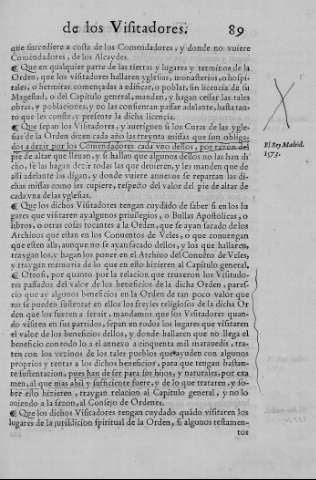 de los Visitadores. 89
que succediere a costa de los Comendadores, y donde no vuiere
Comendadores, de los Alcaydes.
¶ Que en qualquier parte de las tierras y lugares y terminos de la
Orden, que los visitadores hallaren yglesias, monasterios, o hospi-
tales, o hermitas començadas a edificar, o poblar, sin licencia de su
Magestad, o del Capitulo general, manden, y hagan cessar las tales
obras, y poblaciones, y no las consientan passar adelante, hasta tan-
to que les conste, y presente la dicha licencia.
¶ Que sepan los Visitadores, y aueriguen si los Curas de las ygle-
sias de la Orden dizen cada año las treynta missas que son obliga-
dos a dezir por los Comendadores cada vno dellos, por razon del
El Rey. Madrid.
1573.
pie de altar que lleuan, y si hallan que algunos dellos no las han di-
cho, se las hagan dezir todas las que deuieren, y les manden que de
alli adelante las digan, y donde vuiere annexos se repartan las di-
chas missas como les cupiere, respecto del valor del pie de altar de
cada vna de las yglesias.
¶ Que los dichos Visitadores tengan cuydado de saber si en los lu
gares que visitaren ay algunos priuilegios, o Bullas Apostolicas, o
libros, o otras cosas tocantes a la Orden, que se ayan sacado de los
Archiuos que estan en los Conuentos de Vcles, o que conuengan
que esten alli, aunque no se ayan sacado dellos, y los que hallaren,
traygan los, y hagan los poner en el Archiuo del Conuento de Vcles,
y traygan memoria de lo que en esto hizieren al Capitulo general.
¶ Otrosi, por quanto por la relacion que truxeron los Visitado-
res passados del valor de los beneficios de la dicha Orden, pares-
cio que ay algunos beneficios en la Orden de tan poco valor que
no se pueden sustentar en ellos los freyles religiosos de la dicha Or
den que los fueren a seruir, mandamos que los Visitadores quan-
do visiten en sus partidos, sepan en todos los lugares que visitaren
el valor de los beneficios dellos, y donde hallaren que no llega el
beneficio con todo lo a el annexo a cinquenta mil marauedis, tra-
ten con los vezinos de los tales pueblos que ayuden con algunos
proprios y rentas a los dichos beneficios, para que tengan bastan-
te sustentacion, pues han de ser para sus hijos, y naturales, por exa
men, al que mas abil y sufficiente fuere, y de lo que trataren, y so-
bre esto hizieren, traygan relacion al Capitulo general, y no lo
auiendo a la sazon, al Consejo de Ordenes.
¶ Que los dichos Visitadores tengan cuydado quãdo visitaren los
lugares de la jurisdicion spiritual de la Orden, si algunos testamen-
tos